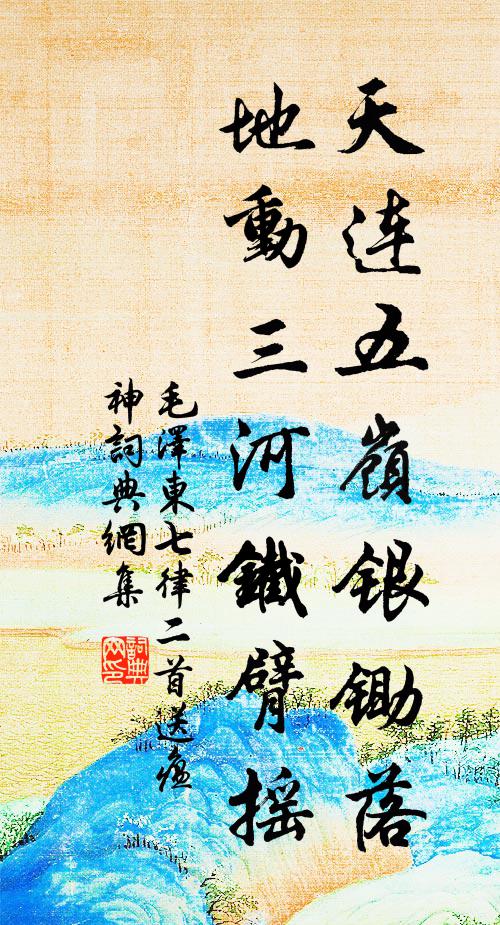 天连五嶺银锄落
地動三河鐵臂摇
毛澤東七律二首送瘟
神詞典網集
詞典